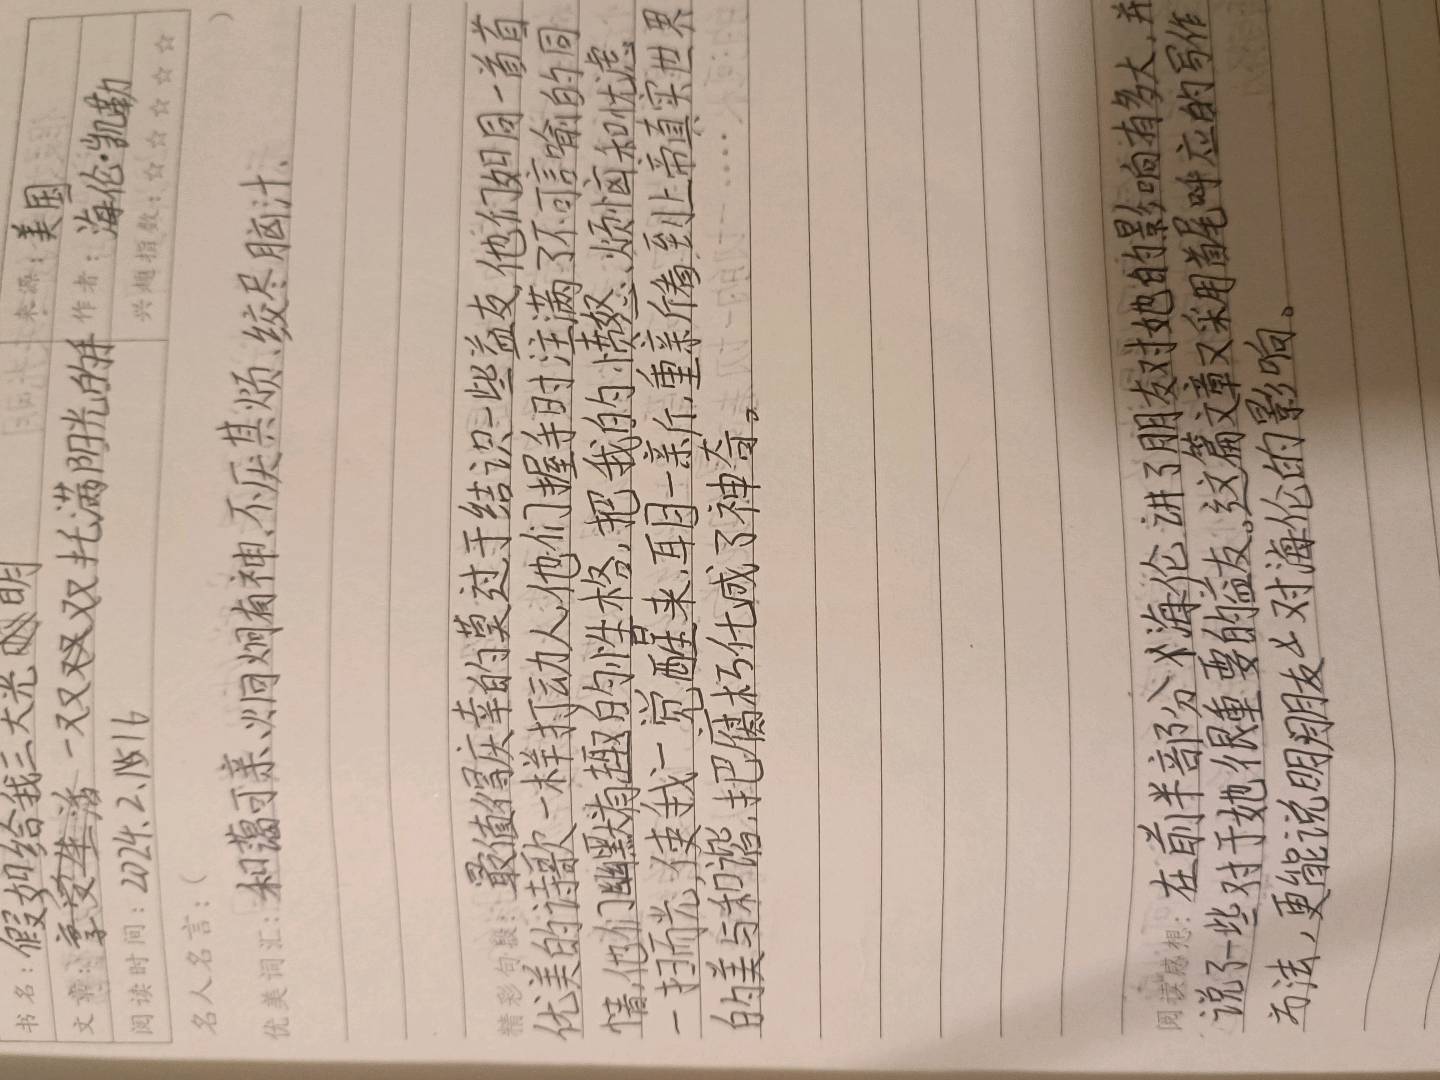 书名：假如给我三天光明 来源：美国
文章：享受生活 一双双双托满阳光的手 作者：海伦·凯勒
阅读时间：2024.2. 兴趣指数：☆☆☆☆☆
名人名言：（ ）
优美词汇：和蔼可亲、炯炯有神、不厌其烦、绞尽脑汁、
精彩句段：最值得庆幸的莫过于结识一些益友，他们如同一首首
优美的诗歌一样打动人，他们握手时注满了不可言喻的同
情，他们幽默有趣的性格，把我的愤怒、烦恼和忧虑
一扫而光，使我一觉醒来，耳目一新，重新看到上帝真实世界
的美与和谐，把腐朽化成了神奇。
阅读感想：在前半部分，海伦讲了朋友对她的影响有多大，并
说了一些对于她很重要的益友。这篇文章又采用首尾呼应的写作
方法，更能说明朋友 对海伦的影响。